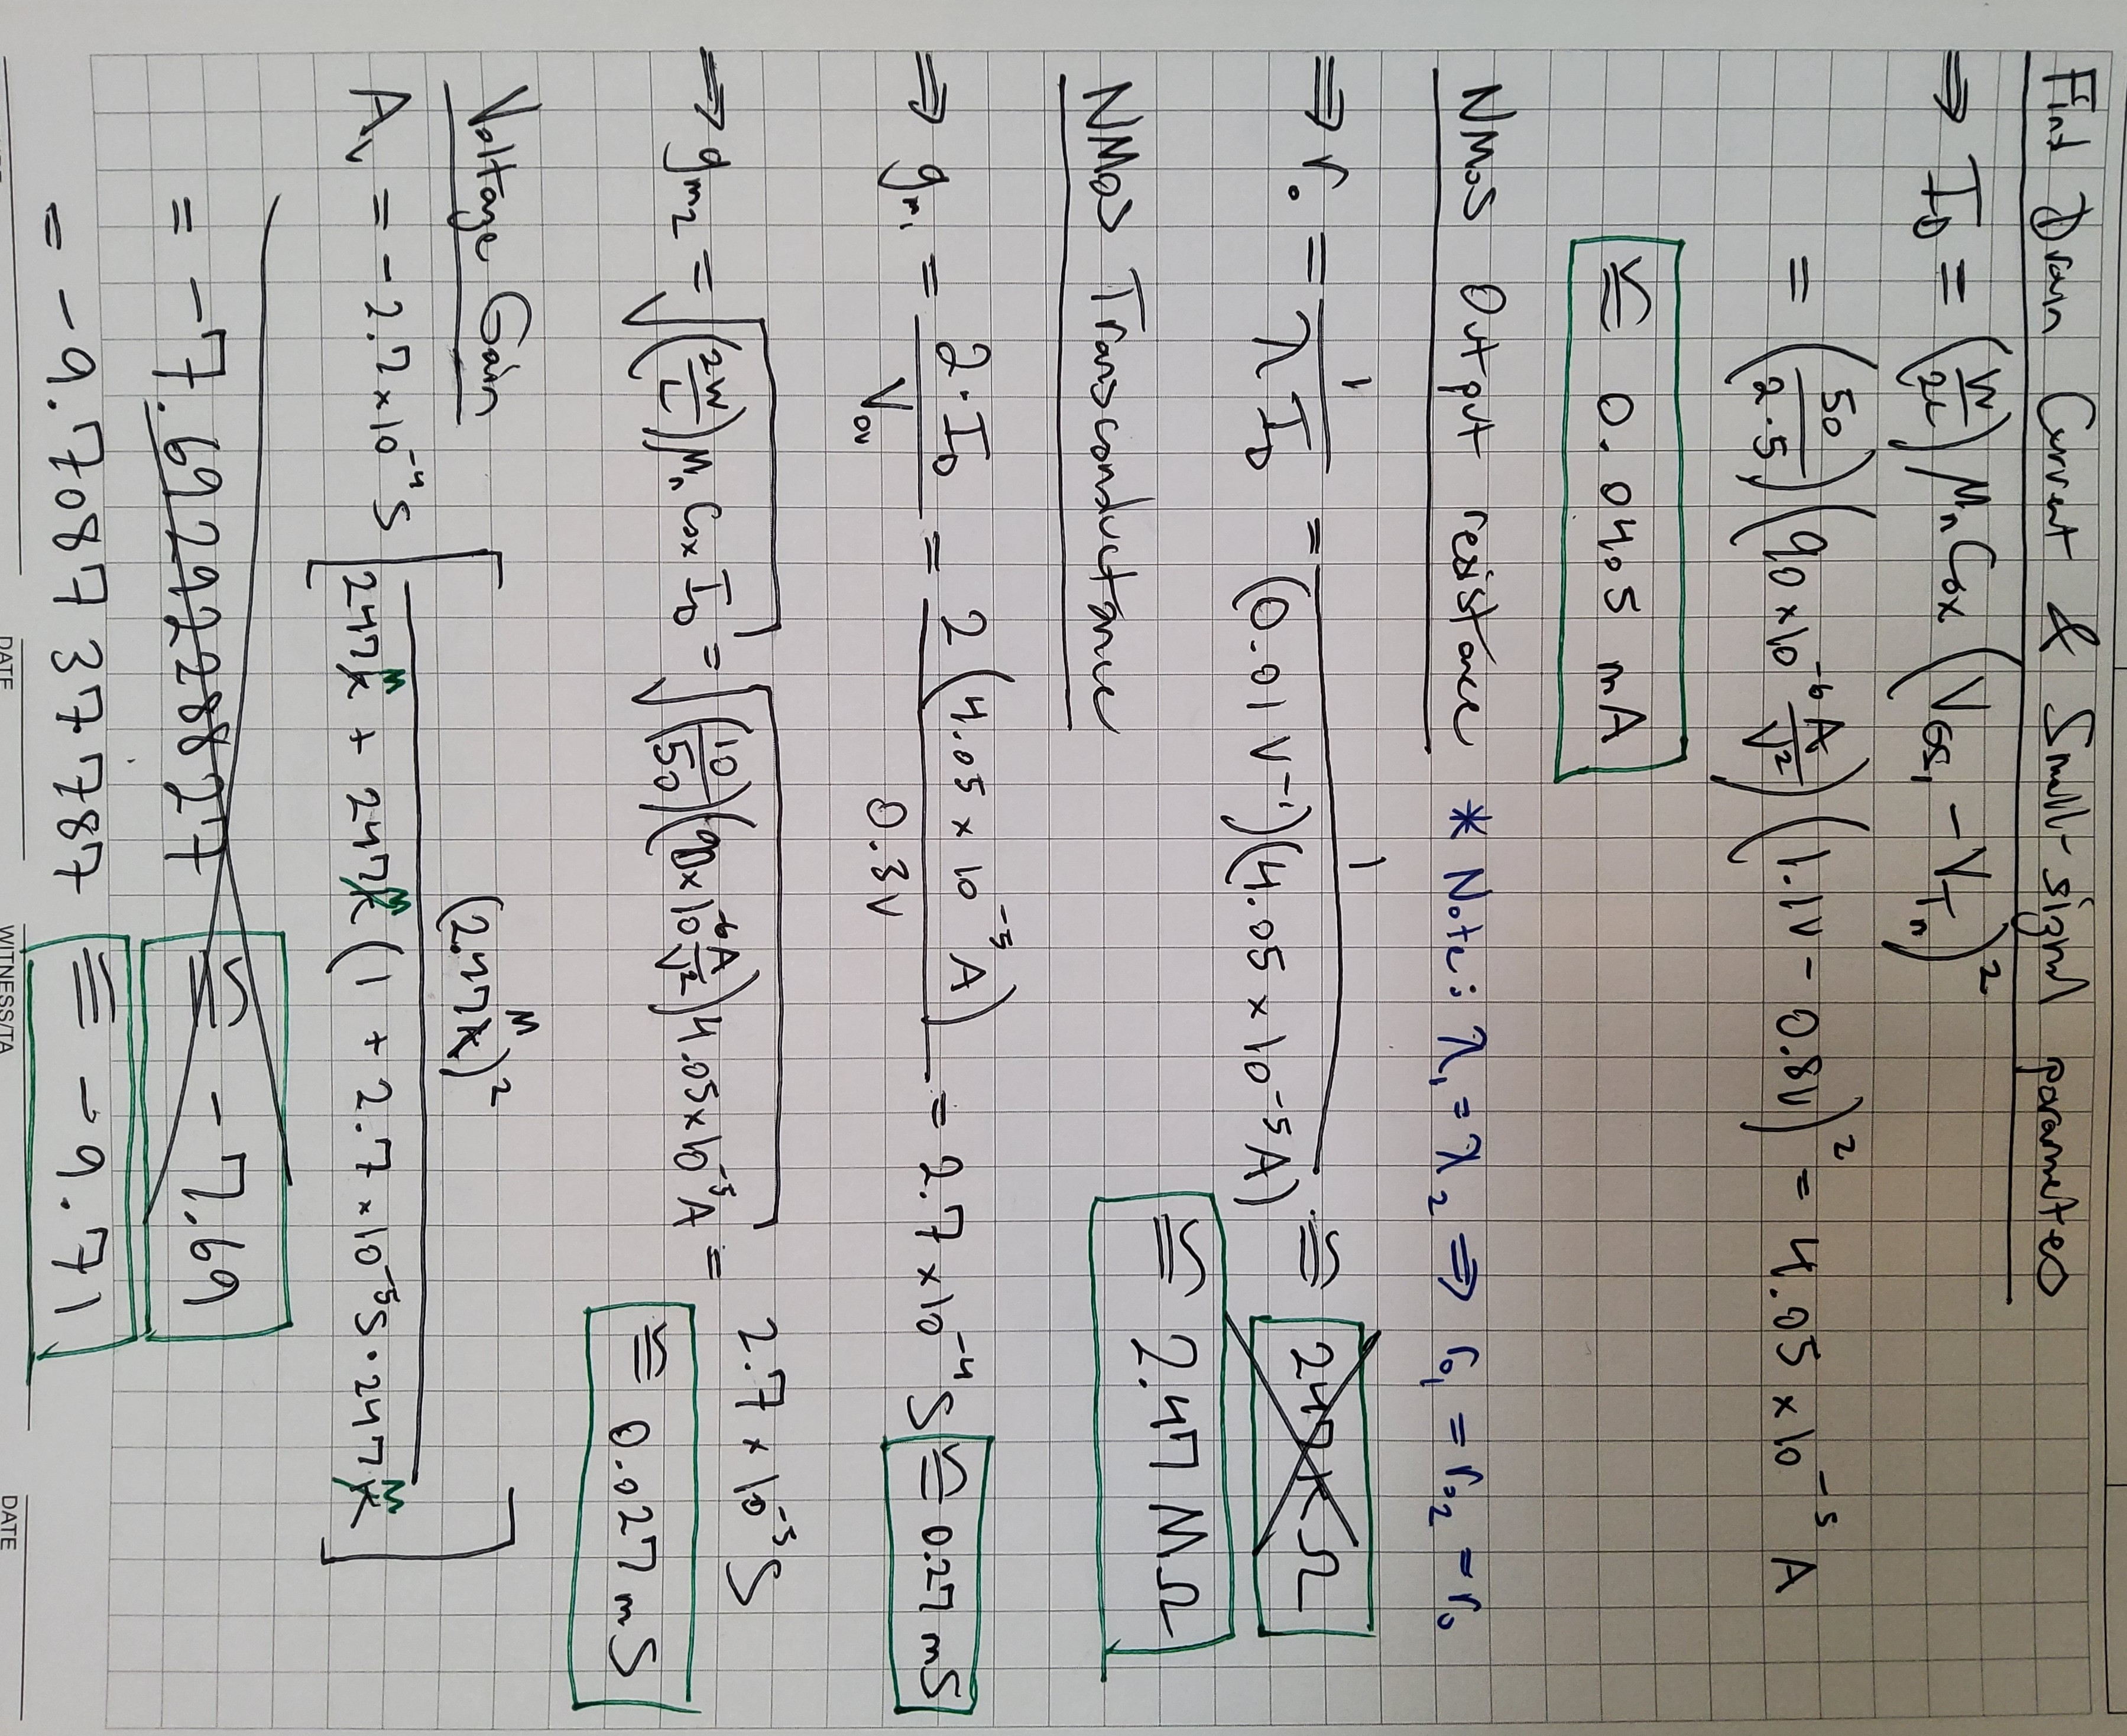 Find Drain Current & Small-signal parameters
⇒ I_D = (W/2L) μ_n C_ox (V_GS₁ - V_Tn)²
= (50/2·5)(90 x 10⁻⁶ A/V²)(1.1V - 0.8V)² = 4.05 x 10⁻⁵ A
≅ 0.0405 mA
NMOS Output resistance * Note: λ₁ = λ₂ ⇒ r_o₁ = r_o₂ = r_o
⇒ r_o = 1/(λ I_D) = 1/((0.01 V⁻¹)(4.05 x 10⁻⁵ A)) ≅ 247K Ω
≅ 2.47 MΩ
NMOS Transconductance
⇒ g_m₁ = 2·I_D/V_ov = 2(4.05 x 10⁻⁵ A)/0.3V = 2.7 x 10⁻⁴ S ≅ 0.27 mS
⇒ g_m₂ = √((2W/L) μ_n C_ox I_D) = √((10/50)(90x10⁻⁶ A/V²)4.05x10⁻⁵A) = 2.7 x 10⁻⁵ S
≅ 0.027 mS
Voltage Gain
A_v = -2.7x10⁻⁴ S [(2.47M)² / (247M + 247M (1 + 2.7 x 10⁻⁵S · 247M)]
= -7.6929228827 ≅ -7.69
= -9.708737787 ≅ -9.71
DATE WITNESS/TA DATE